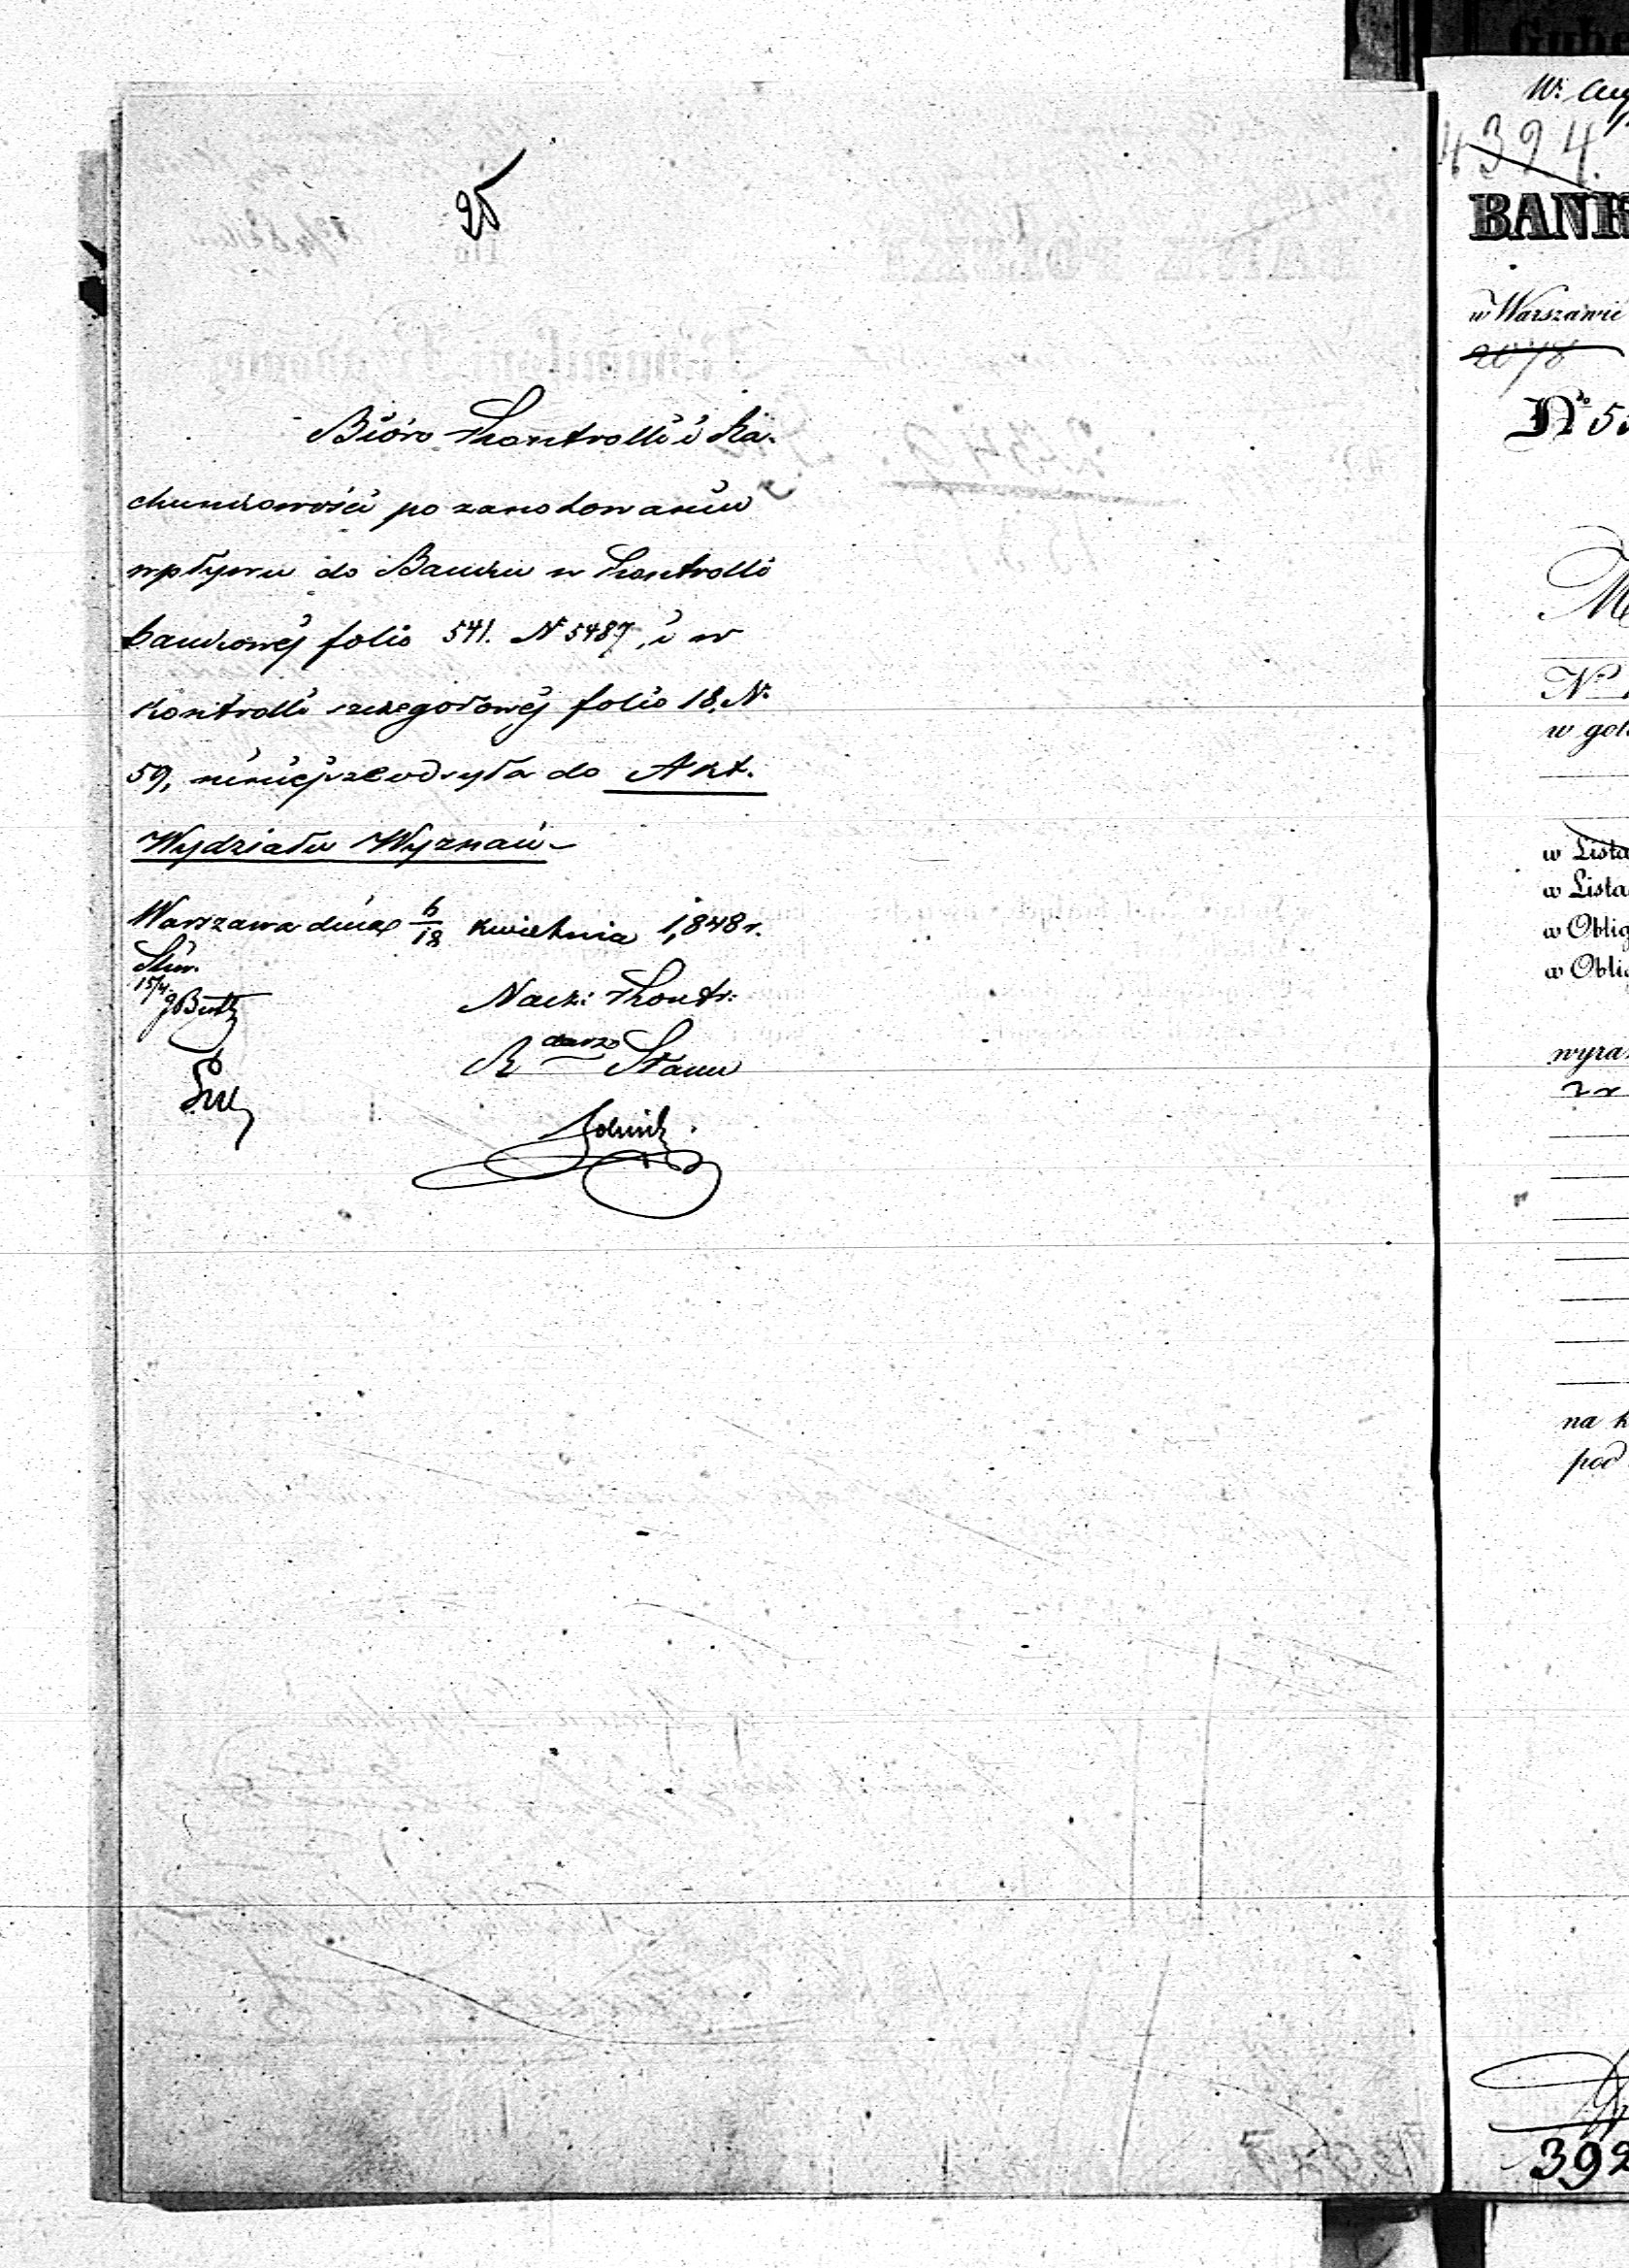 25
Bióro Kontrolli i Ra-
chunkowości po zanotowaniu
wpływu do Banku w Kontrolli
bankowéj folio 541. N 5487, i w
Kontrolli szczegołowéj folio 18. N.
59, niniejsze odsyła do Akt.
Wydziału Wyznań
Warszawa dnia 6/18 Kwietnia 1,848 r.
15/4
Nacz: Kontr:
R darz Stanu
4394.
BANK
w Warszawie
2078
No 5
No
w got
w Lista
w Lista
w Oblig
w Oblig
wyra
na k
pod
392